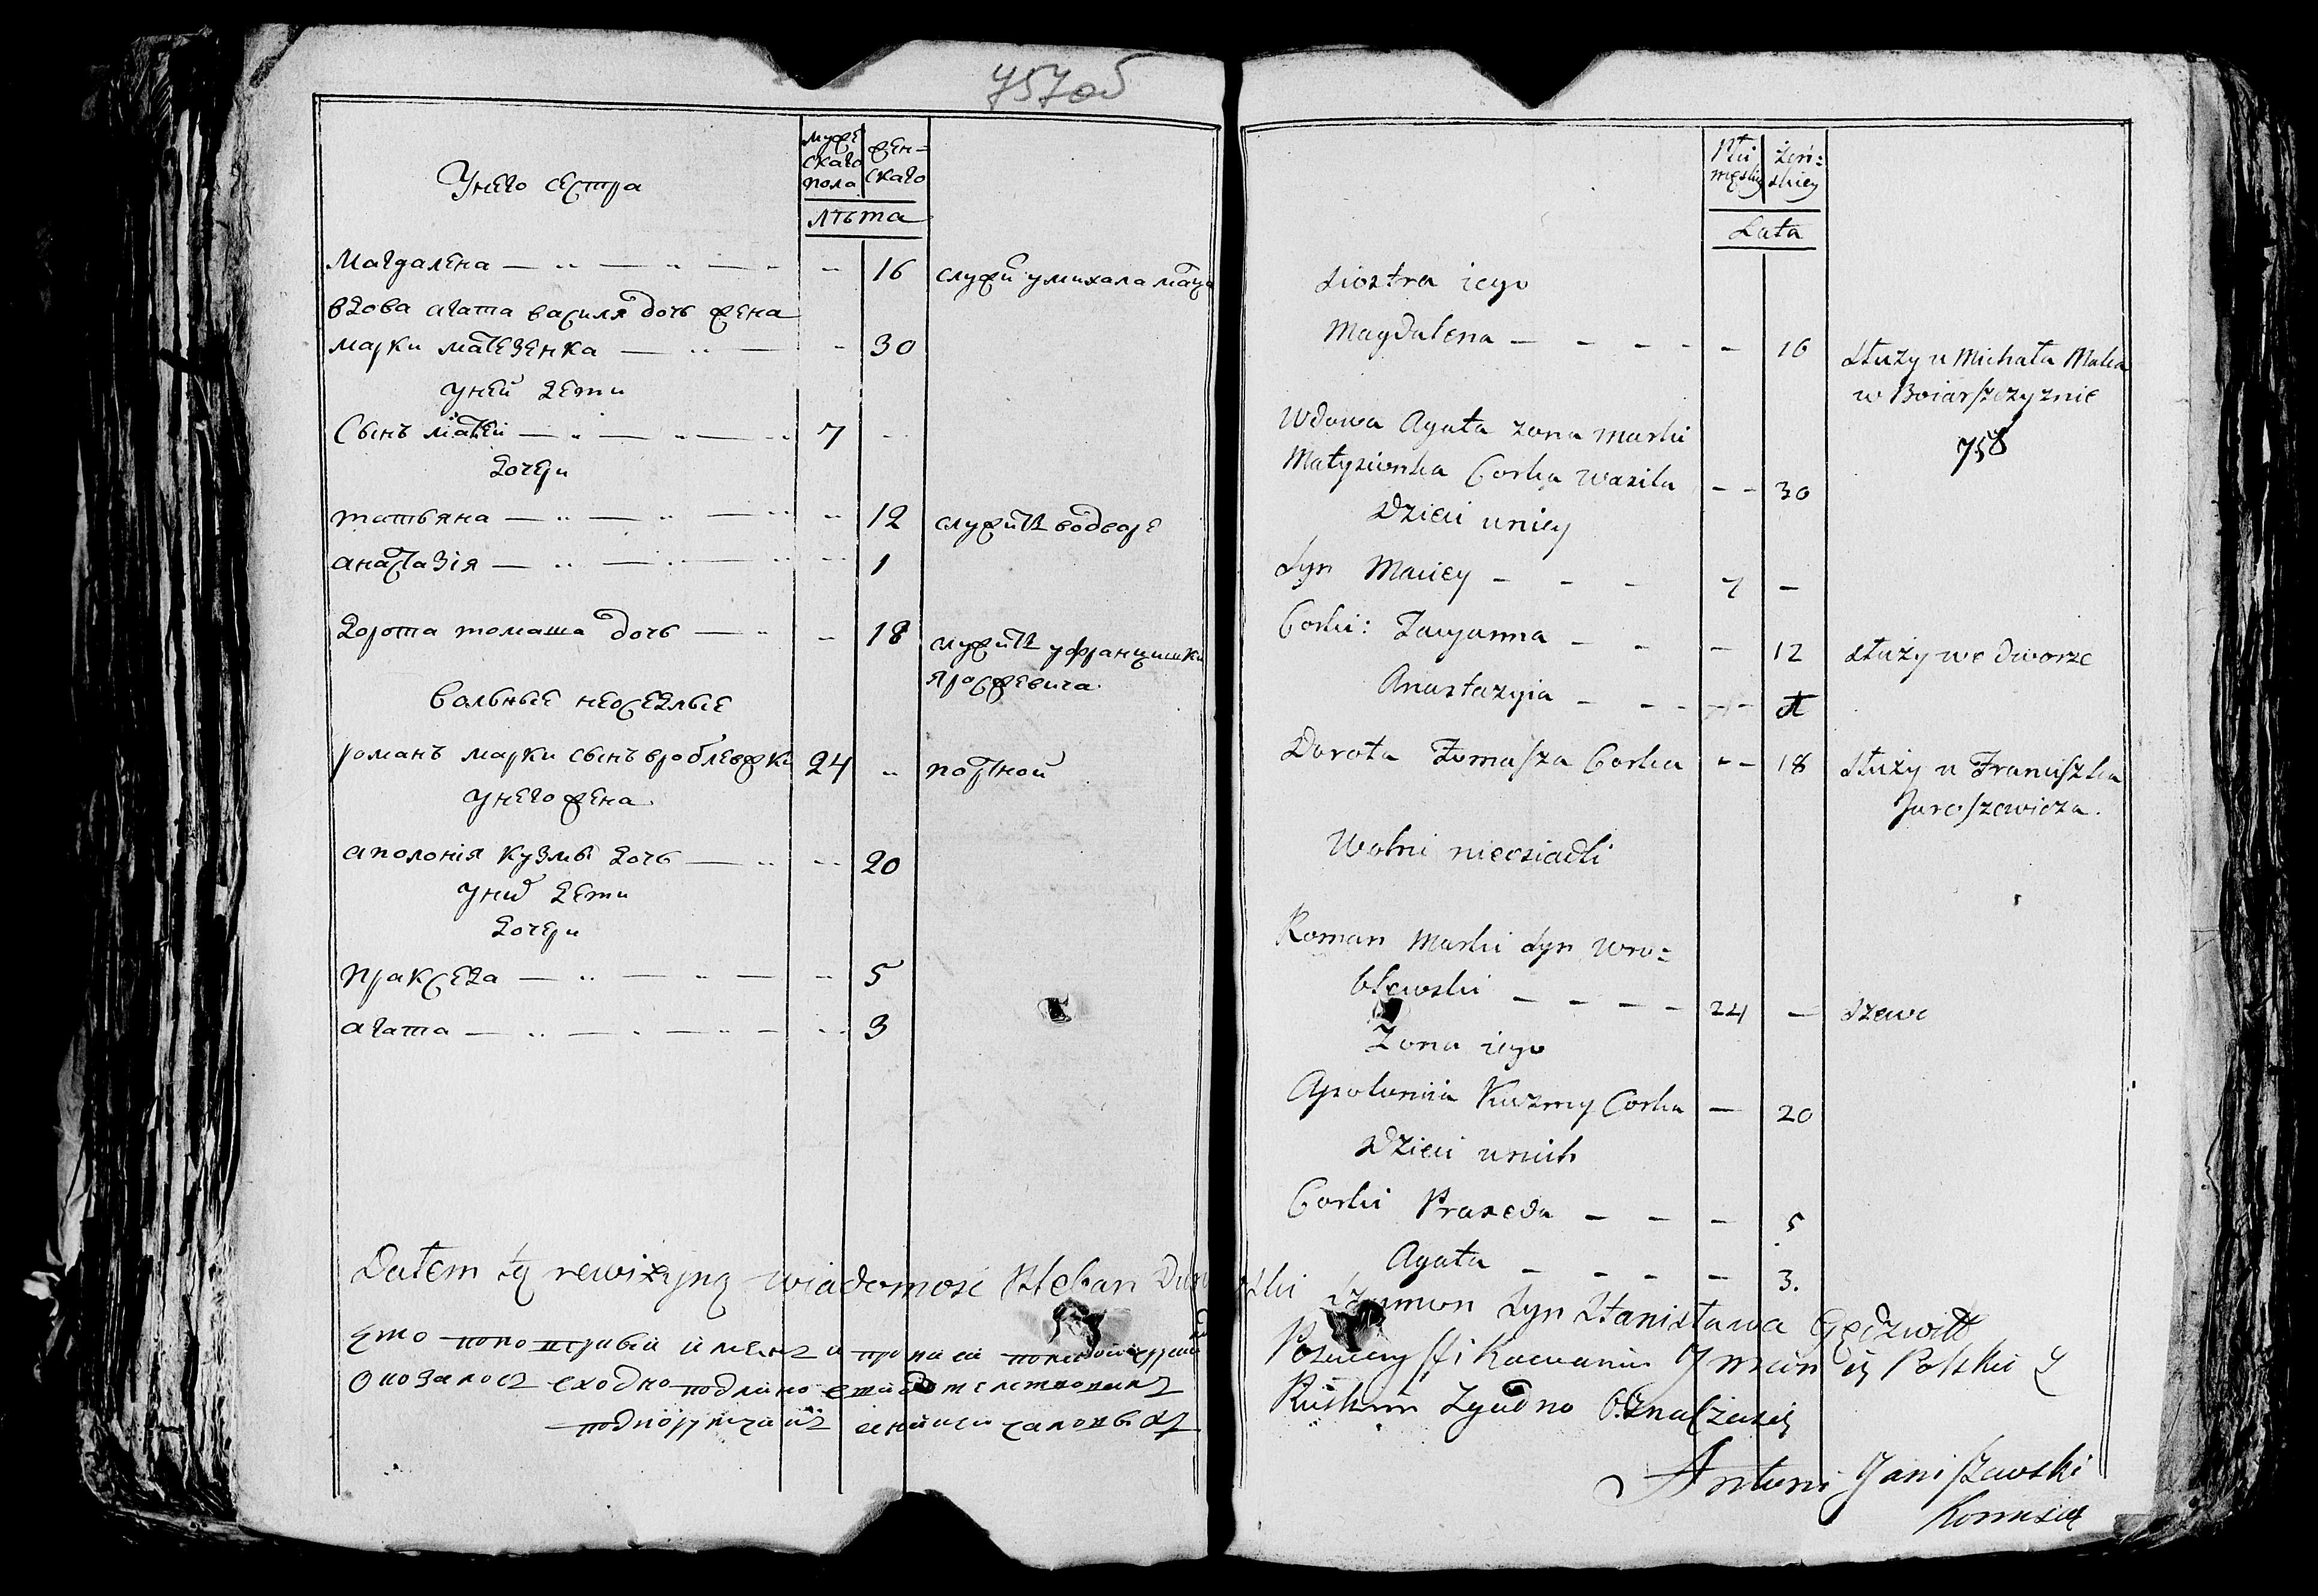 757об
Унего сестра
мужескаго пола
женскаго
лѣта
Магдалена 16 служи умихала маца
вдова агата василя дочь жена
марки матезенка 30
уней дети
Сынъ матей 7
дочери
татьяна 12 служитъ водворе
анастазія 1
дорота томаша дочь 18 служитъ уфранцишки
ярошевича
вольные неоседлые
романъ марки сынъ вроблевски 24 портной
унего жена
аполонія кузмы дочь 20
уних дети
дочери
пракседа 5
агата 3
Datem tę rewizyjną wiadomosć Stefan
Płci męskiey
żeńskiey
Lata
Siostra iego
Magdalena 16 służy u Michała Maka
w Boiarszczyznie
758
Wdowa Agata zona Marki
Matyzionka Corka Wasila 30
Dzieci uniey
Syn Maciey 7
Corki: Tacyanna 12 służy we dworze
Anastazyia 1
Dorota Tomasza Corka 18 służy u Franciszka
Jaroszewicza.
Wolni nieosiadli
Roman Marki Syn Wro=
blewski 24 szewc
Zona iego
Apolonia Kuzmy Corka 20
Dzieci unich
Corki Praxeda 5
Agata 3.
Szymon Syn Stanisława Giedzwiłł
Polskie y
Ruskim Zgadno
Antoni Janiszewski